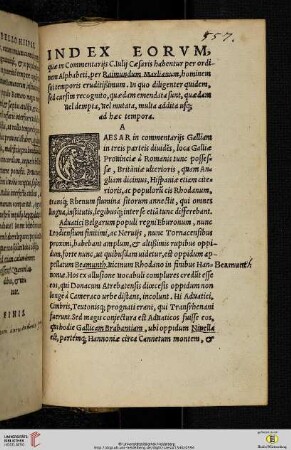 557.
INDEX EORVM,
quæ in Commentarijs C. Iulij Cæsaris habentur per ordi
nem Alphabeti, per Raimundum Marlianum, hominem
sui temporis eruditissimum. In quo diligenter quidem,
sed cursim recognito, quædam emendata sunt, quædam
vel dempta, vel mutata, multa addita usq;
ad hæc tempora.
A
CAESAR in commentarijs Galliam
in treis parteis diuidēs, loca Galliæ
Prouinciæ à Romanis tunc posses
sæ, Britāniæ ulterioris, quam An
gliam dicimus, Hispaniæ etiam cite
rioris, ac populorū cis Rhodanum,
transq; Rhenum flumina sitorum annectit, qui omnes
lingua, institutis, legibusq; inter se etiā tunc differebant.
Aduatici Belgarum populi regni Eburonum, nunc
Leodiensium finitimi, ac Neruijs, nunc Tornacensibus
proximi, habebant amplum, & altissimis rupibus oppi
dum, forte nunc, ut quibusdam uidetur, est oppidum ap
pellatum Beamunth
in finibus Han
Beamunth
noniæ. Hos ex allusione vocabuli complures credūt esse
eos, qui Donacum Atrebatensis diocesis oppidum non
longè à Cameraco urbe distans, incolunt. Hi Aduatici,
Cimbris, Teutonisq; prognati erant, qui Transrhenani
fuerunt. Sed magis coniectura est Aduaticos fuisse eos,
qui hodie Gallicam Brabantiam, ubi oppidum Niuella
est, partemq; Hannoniæ circa Cannetum montem, &
FINIS.
UNIVERSITÄTS-
BIBLIOTHEK
HEIDELBERG
© Universitätsbibliothek Heidelberg